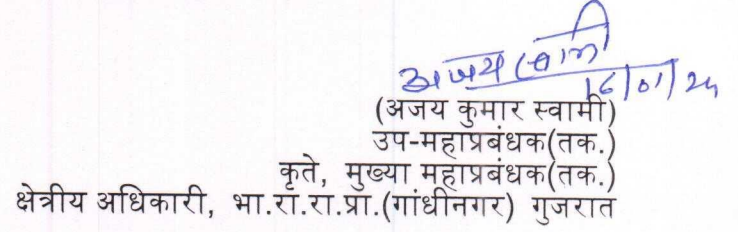 अजय स्वामी
16/01/24
(अजय कुमार स्वामी)
उप-महाप्रबंधक(तक.)
कृते, मुख्या महाप्रबंधक(तक.)
क्षेत्रीय अधिकारी, भा.रा.रा.प्रा.(गांधीनगर) गुजरात